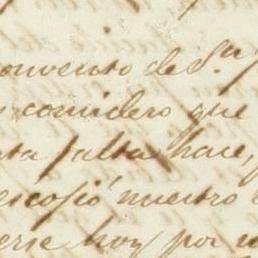 convento de S.ⁿ
considero que
ta falta hace,
escojió nuestro
erse hoy por